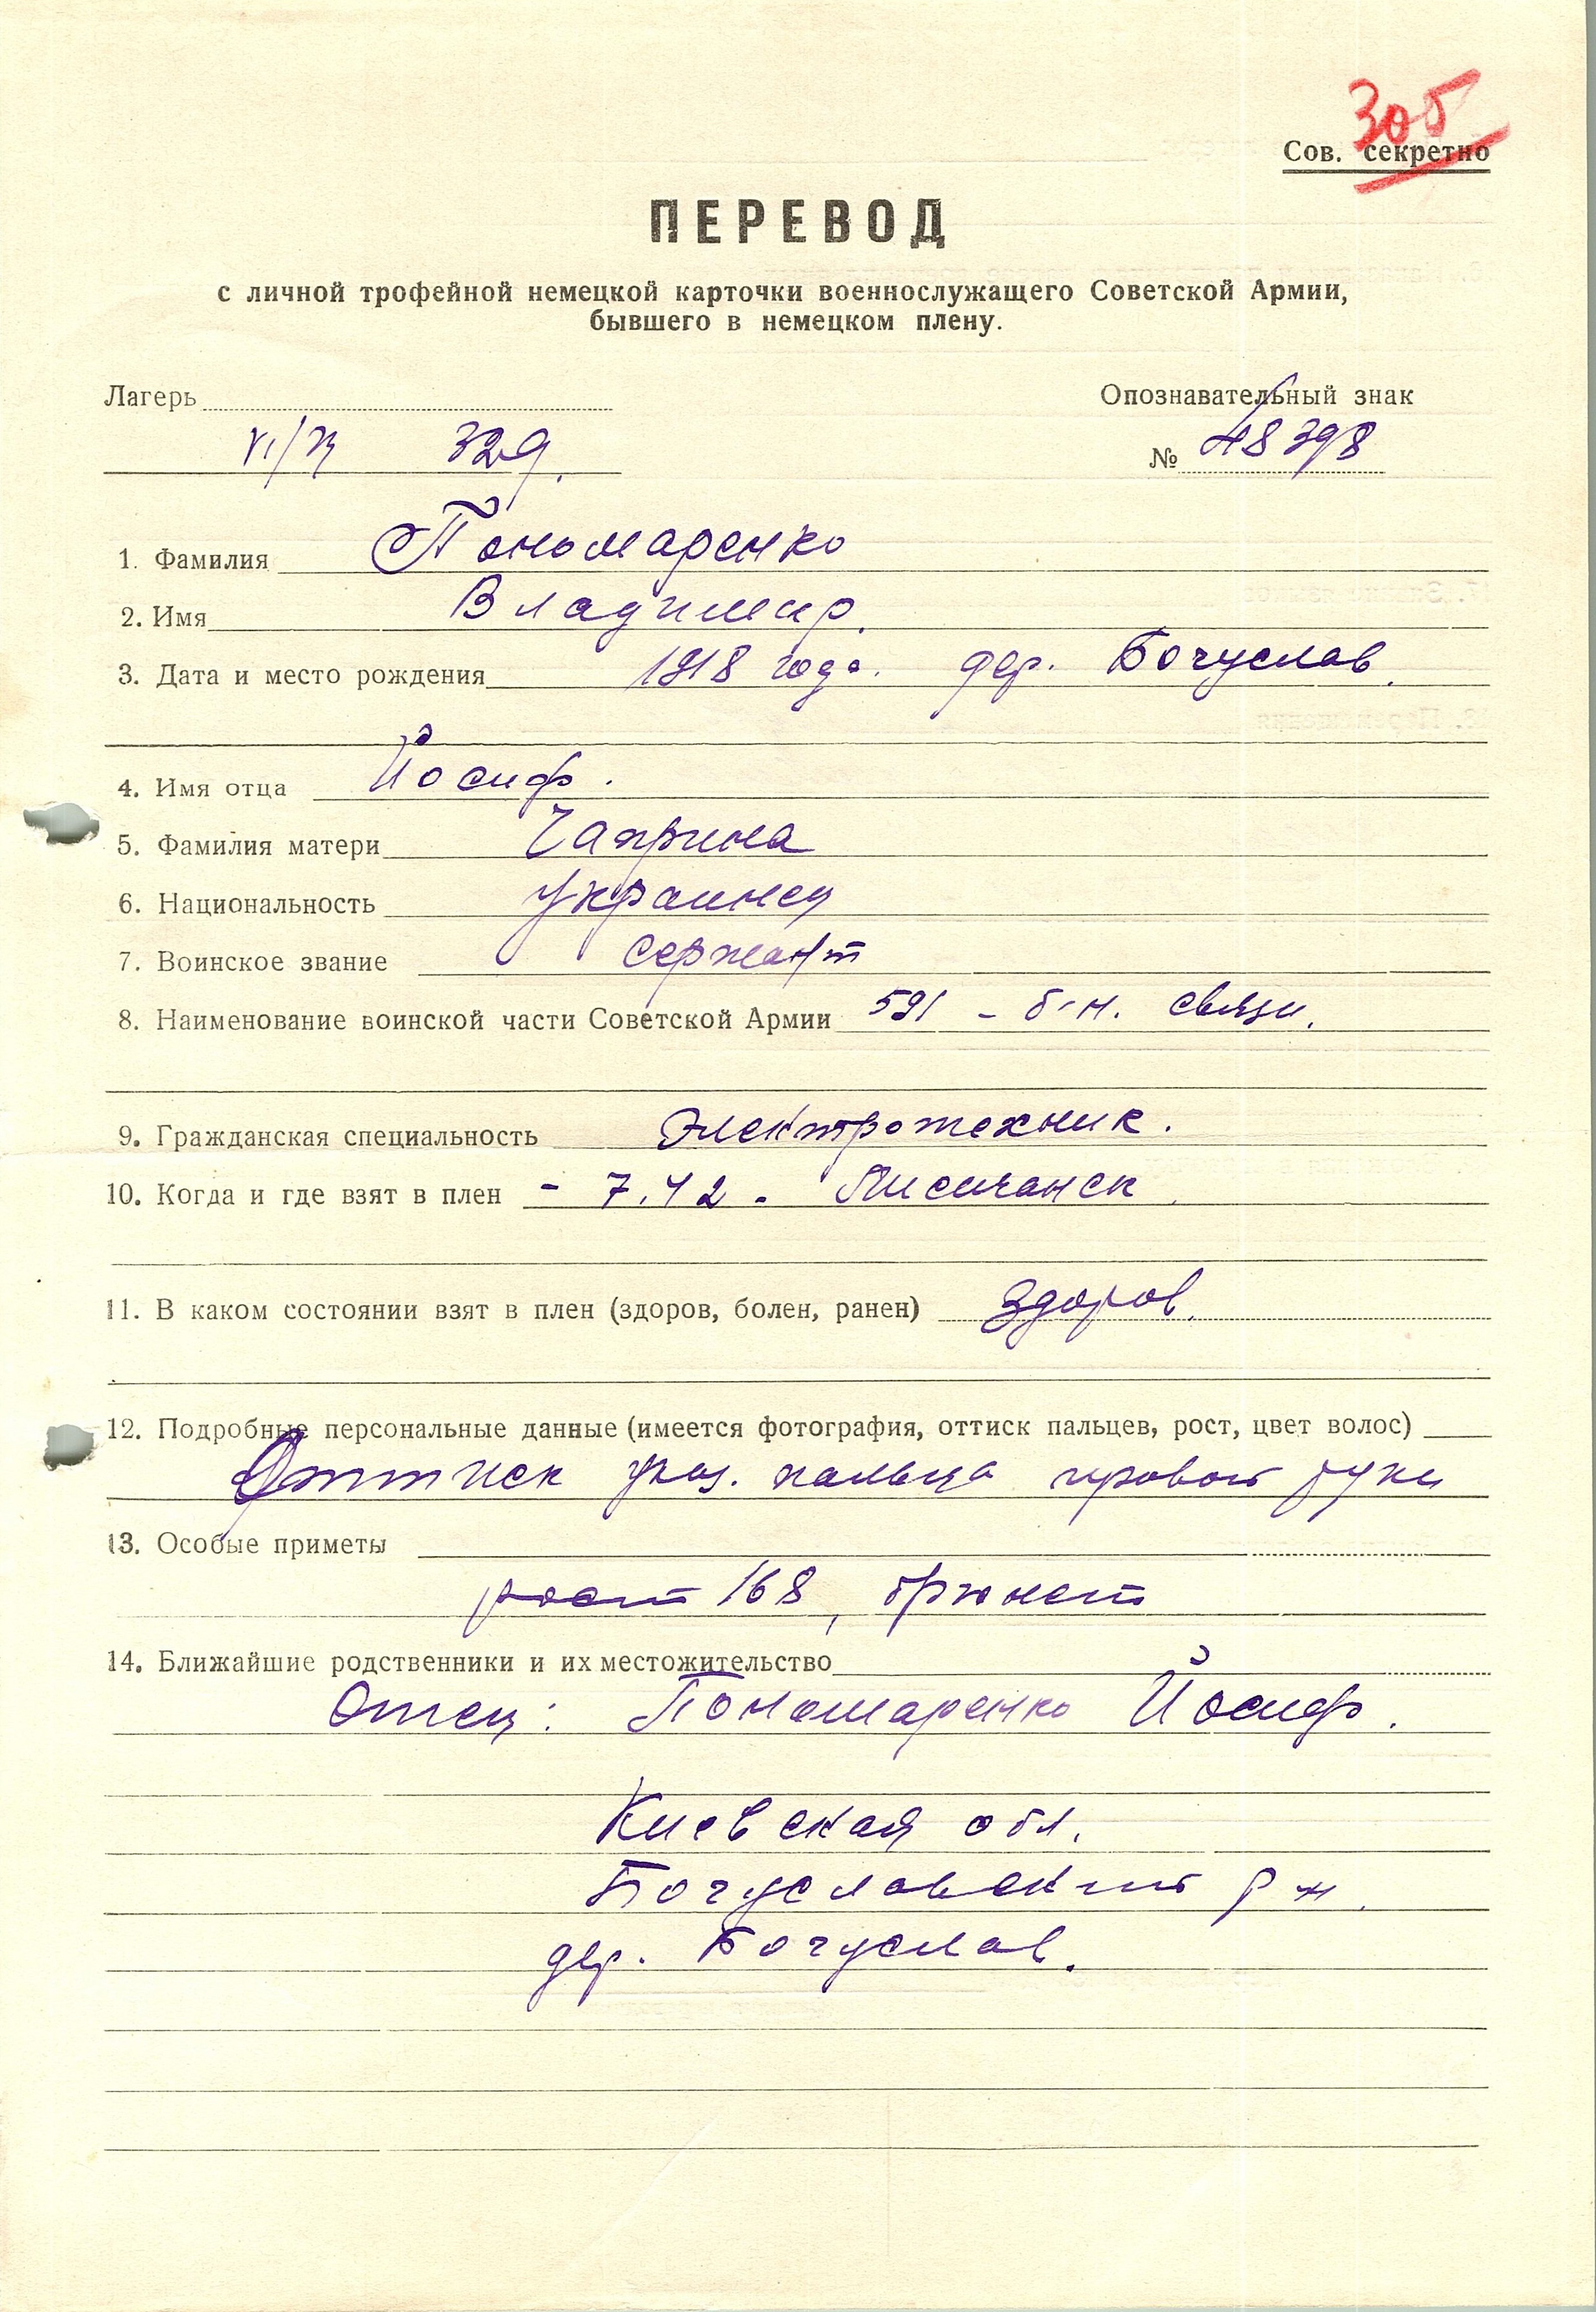 305
Сов. секретно
ПЕРЕВОД
с личной трофейной немецкой карточки военнослужащего Советской Армии,
бывшего в немецком плену.
Лагерь
Опознавательный знак
329.
№ 48398
1. Фамилия Пономаренко
2. Имя Владимир.
3. Дата и место рождения 1918 года. дер. Богуслав.
4. Имя отца Йосиф.
5. Фамилия матери Чаприна
6. Национальность Украинец
7. Воинское звание Сержант
8. Наименование воинской части Советской Армии 591 - б-н. связи.
9. Гражданская специальность Электротехник.
10. Когда и где взят в плен - 7.42. Лисичанск.
11. В каком состоянии взят в плен (здоров, болен, ранен) Здоров.
12. Подробные персональные данные (имеется фотография, оттиск пальцев, рост, цвет волос)
Оттиск указ. пальца правой руки
13. Особые приметы
рост 168, брюнет
14. Ближайшие родственники и их местожительство
Отец: Пономаренко Йосиф.
Киевская обл.
Богуславский р-н.
дер. Богуслав.